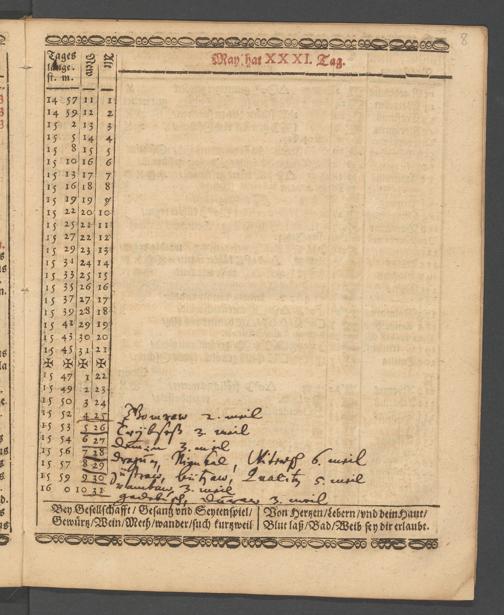 8
May hat XXXI. Tag.
Tages
länge. New Alt
st. m.
14 57 11 1
14 59 12 2
15 2 13 3
15 5 14 4
15 8 15 5
15 10 16 6
15 13 17 7
15 16 18 8
15 19 19 9
15 22 20 10
15 25 21 11
15 27 22 12
15 29 23 13
15 31 24 14
15 33 25 15
15 35 26 16
15 37 27 17
15 39 28 18
15 41 29 19
15 43 30 20
15 45 31 21
✠ ✠ ✠ ✠
15 47 1 22
15 49 2 23
15 50 3 24
15 52 4 25 2. meil
15 53 5 26 3. meil
15 54 6 27 3. meil
15 56 7 28 6. meil
15 57 8 29 5. meil
15 59 9 30 3. meil
16 0 10 31 3. meil
Bey Gesellschafft/Gesang vnd Seytenspiel/
Gewürtz/Wein/Meth/wander/such kurtzweil
Von Hertzen/Lebern/vnd dein Haut/
Blut laß/Bad/Weib sey dir erlaubt.